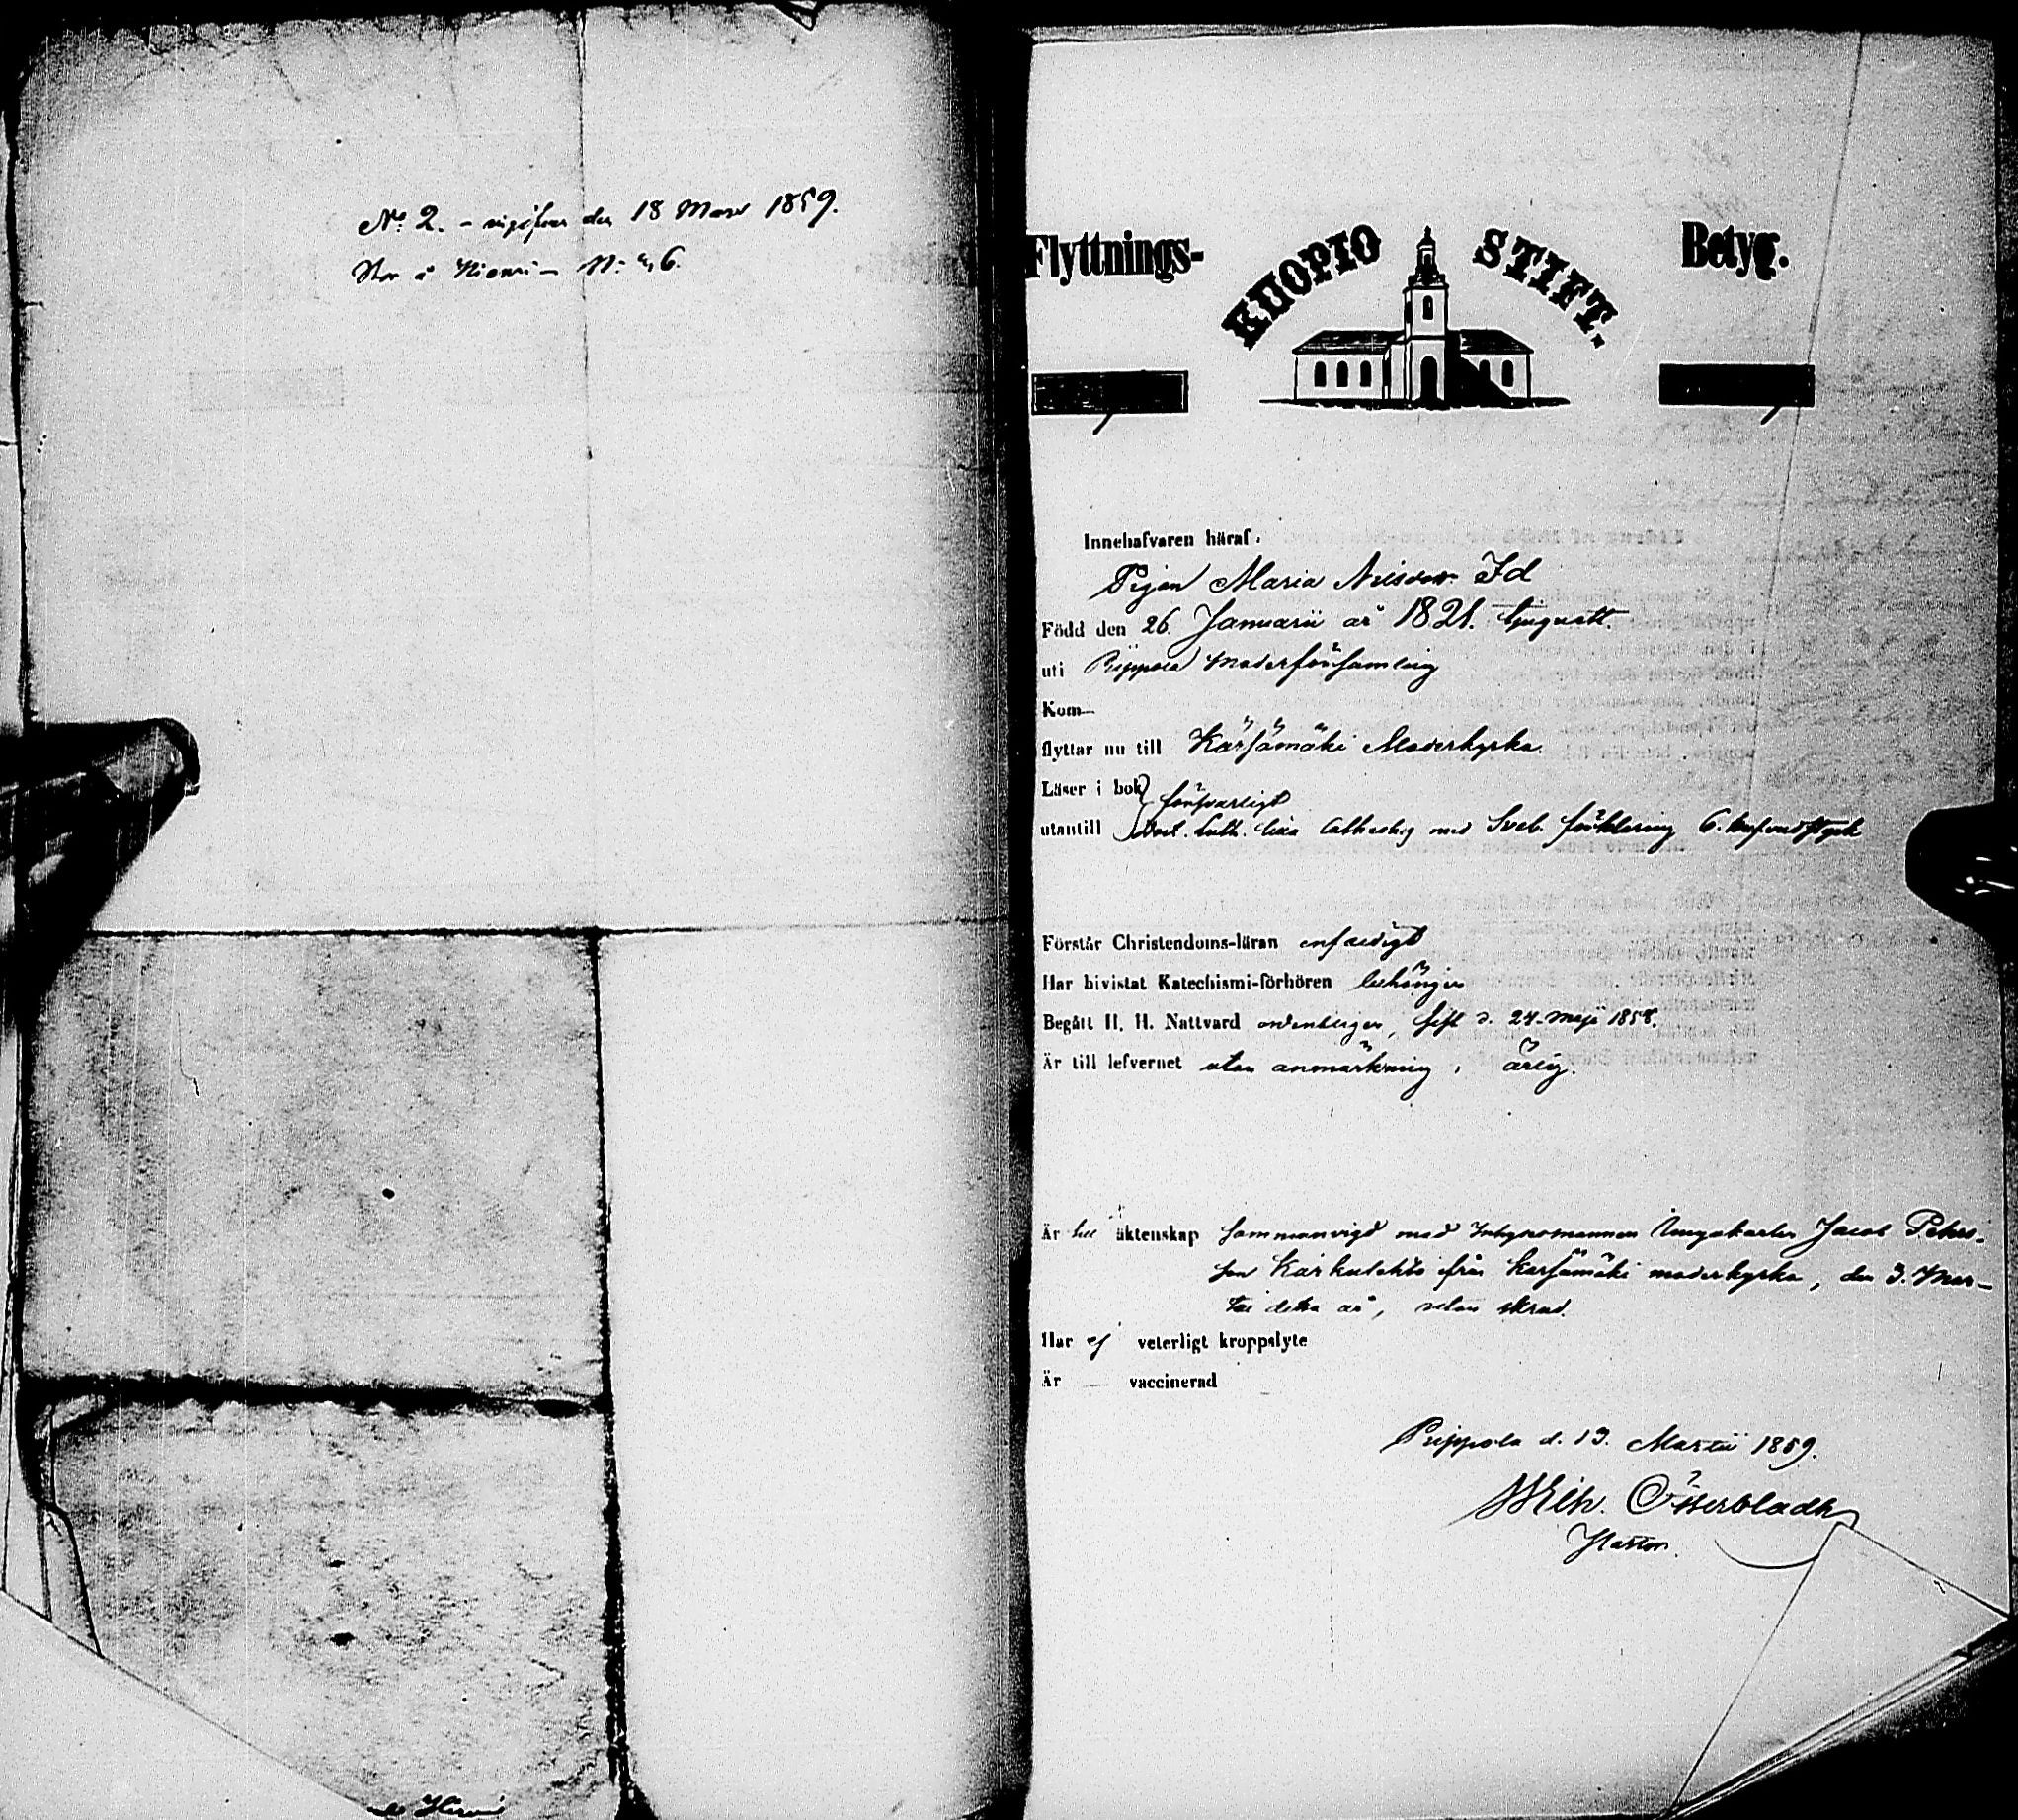 No: 2. - den 18 Mars 1859.
Niemi - N: 6.
Flyttnings- KUOPIO STIFT. Betyg.
Innehafvaren häraf.
Pigan Maria Nilsdotter Id
Född den 26. Januarii år 1821. tjuguett.
uti Moderförsamling
Kom—
flyttar nu till Kärsämäki Moderkyrka.
Läser i bok försvarligt
utantill Luth. lilla med Sveb. förklaring 6.
Förstår Christendoms-läran enfaldigt
Har bivistat Katechismi-förhören behörigen
Begått H. H. Nattvard ordentligen, sist d. 24. Maji 1858.
Är till lefvernet utan anmärkning, ärlig.
Är till äktenskap sammanvigd med Jacob Peters-
son från Kärsämäki moderkyrka, den 3. Mar-
tii detta år,
Har ej veterligt kroppslyte
Är — vaccinerad
d. 13. Martii 1859.
Wilh. Österbladh
Pastor.